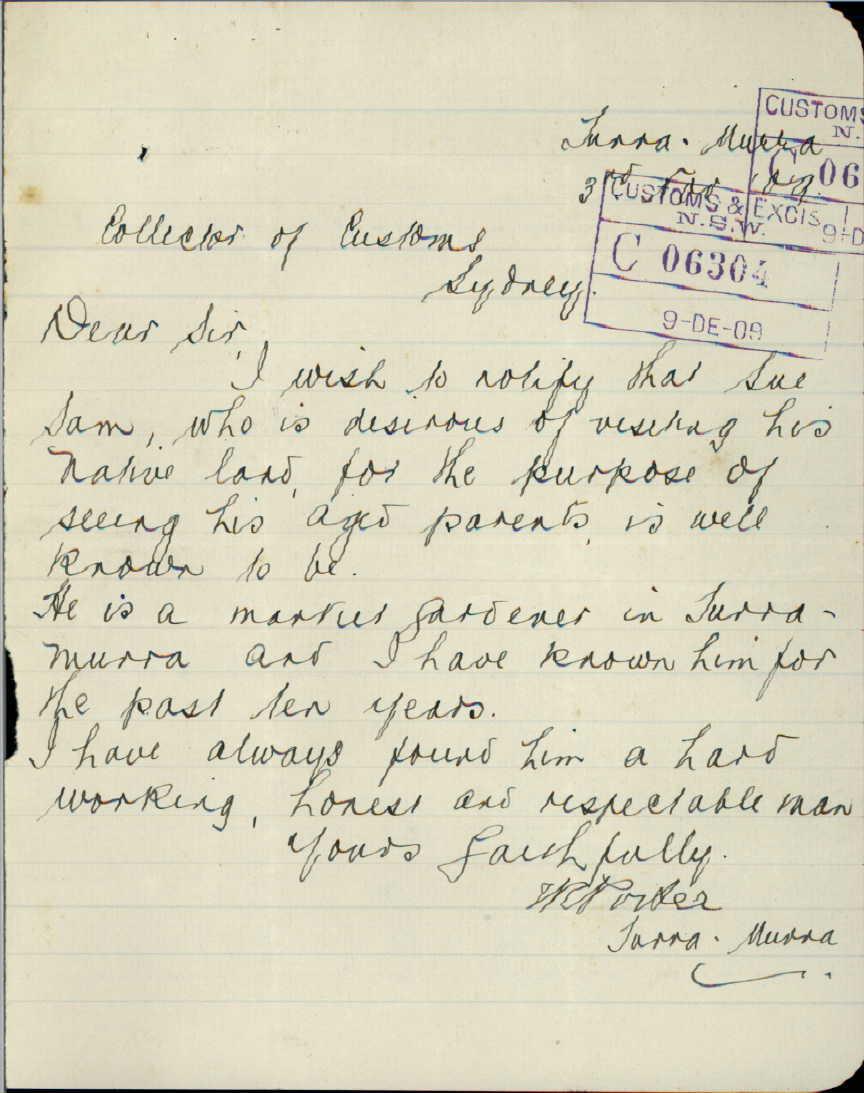 Turra. Murra
CUSTOMS
N.
C 06
3rd '09.
CUSTOMS & EXCIS
N.S.W.
9-D
C 06304
9-DE-09
Collector of Customs
Sydney.
Dear Sir,
I wish to notify that Sue
Sam, who is desirous of visiting his
native land, for the purpose of
seeing his aged parents, is well
known to be.
He is a market gardener in Turra-
murra and I have known him for
the past ten years.
I have always found him a hard
working, honest and respectable man
Yours faithfully.
Porter
Turra. Murra